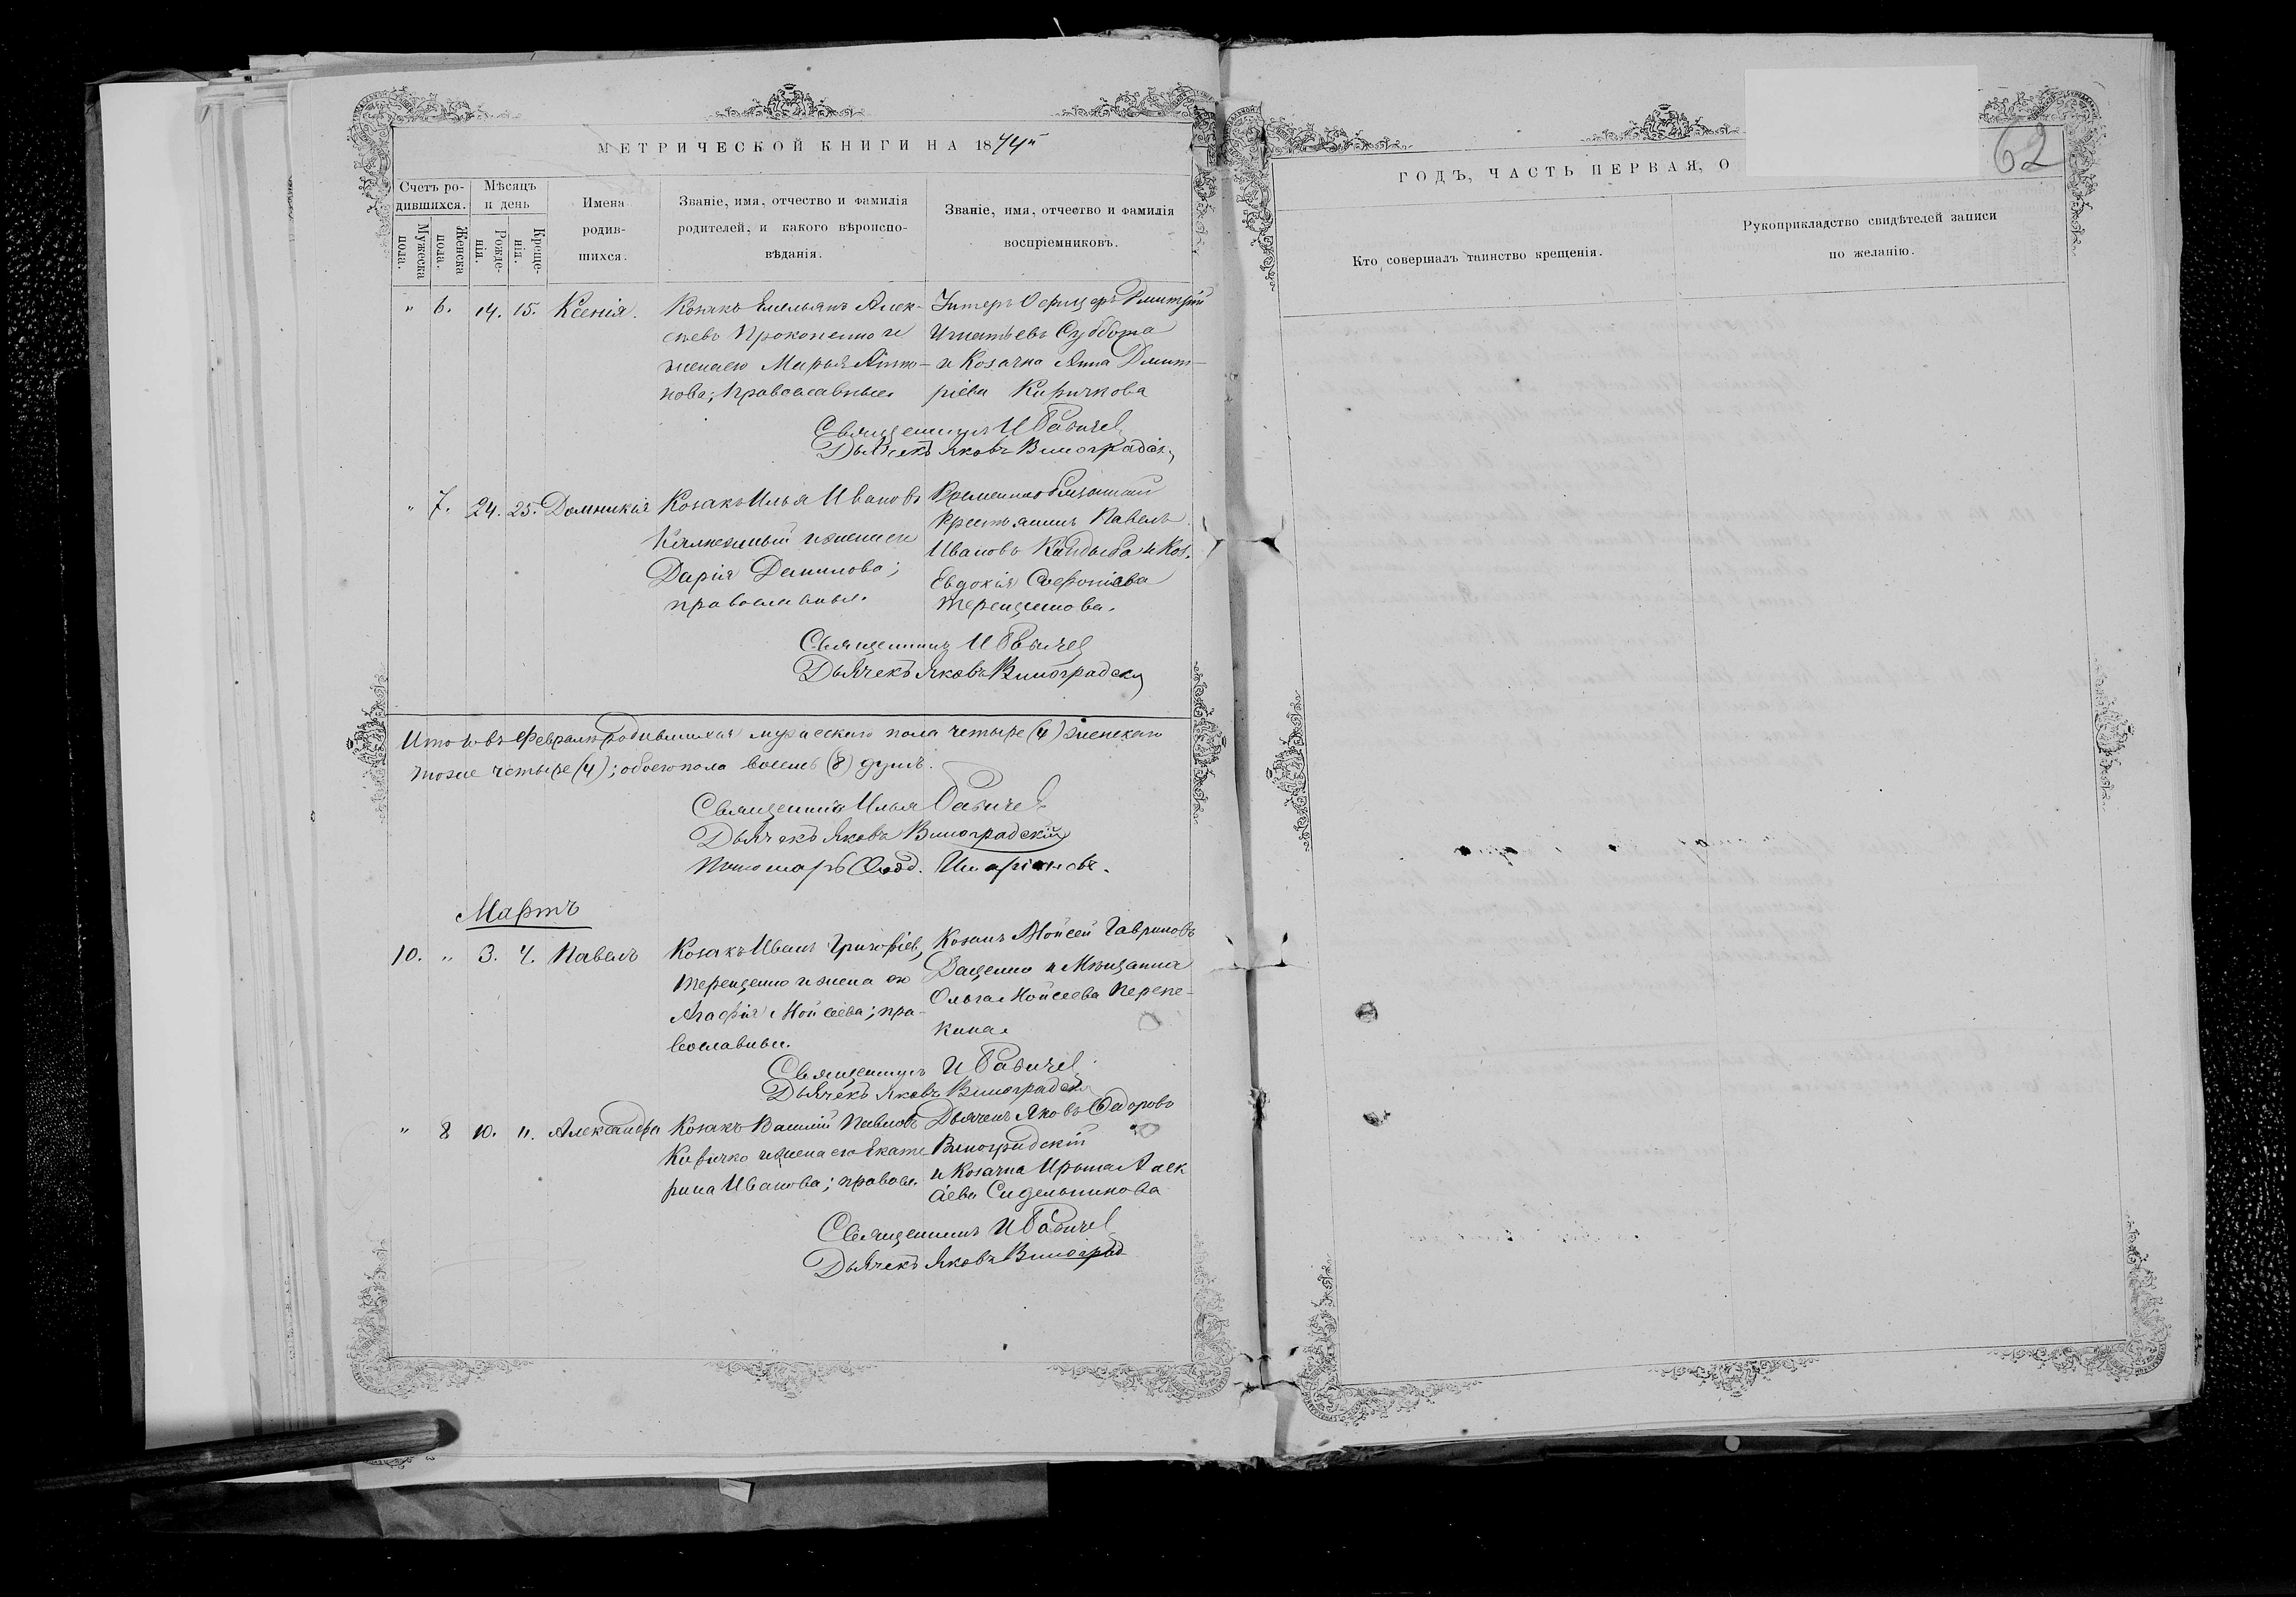 МЕТРИЧЕСКОЙ КНИГИ НА 1874й
Счетъ ро-
дившихся.
Мужеска
пола.
Женска
пола.
Мѣсяцъ
и день
Рожде-
нія.
Креще-
нія.
Имена
родив-
шихся.
Званіе, имя, отчество и фамилія
родителей, и какого вѣроиспо-
вѣданія.
Званіе, имя, отчество и фамилія
воспріемниковъ.
" 6. 14. 15. Ксенія.
Козакъ Емельянъ Алек-
сѣевъ Прокопенко и
жена его Марья Анто-
нова; православные.
Унтеръ Офицеръ Дмитрій
Игнатьевъ Суббота
и Козачка Анна Дмит-
ріева Киричкова
Священникъ И Бабичев
Дьячекъ Яковъ Виноградскій
" 7. 24. 25. Домникія
Козакъ Илья Ивановъ
и жена его
Дарія Данилова;
православные.
Временнообязанный
Крестьянинъ Павелъ
Ивановъ Кандыба и Коз.
Евдокія Софоніева
Терещенкова.
Священникъ И Бабичев
Дьячекъ Яковъ Виноградскій
Итого въ Февралѣ родившихся мужескаго пола четыре (4) женскаго
тоже четыре (4); обоего пола восемь (8) душъ.
Священникъ Илья Бабичев
Дьячекъ Яковъ Виноградскій
Пономарь Иларіоновъ.
Мартъ
10. " 3. 4. Павелъ
Козакъ Иванъ Григоріев
Терещенко и жена его
Агафія Моисеева; пра-
вославные.
Козакъ Моисей Гавриловъ
Ващенко и Мѣщанка
Ольга Моисеева Перепе-
кина.
Священникъ И Бабичев
Дьячекъ Яковъ Виноградскій
" 8 10. 11. Александра
Козакъ Василій Павловъ
Киричко и жена его Екате
рина Иванова; правосл.
Дьячекъ Яковъ Федоровъ
Виноградскій
и Козачка Ирына Алек
сѣева Сидельникова
Священникъ И Бабичев
Дьячекъ Яковъ Виноград
ГОДЪ, ЧАСТЬ ПЕРВАЯ, О
62
Кто совершалъ таинство крещенія.
Рукоприкладство свидѣтелей записи
по желанію.